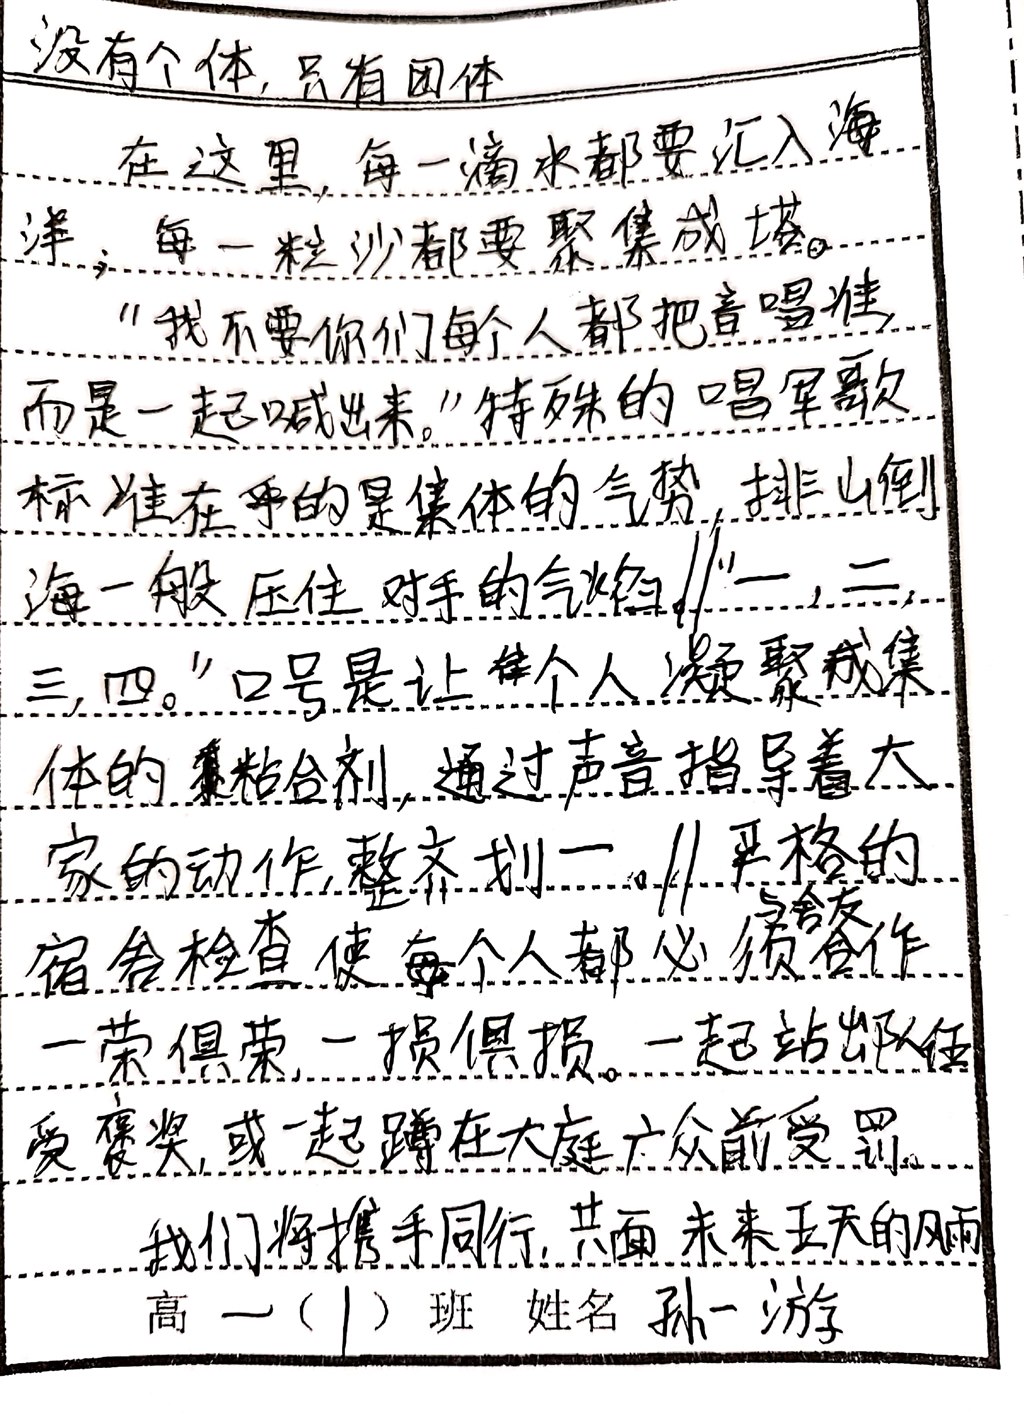 没有个体，只有团体
在这里，每一滴水都要汇入海
洋，每一粒沙都要聚集成塔。
“我不要你们每个人都把音唱准，
而是一起喊出来。”特殊的唱军歌
标准在乎的是集体的气势，排山倒
海一般压住对手的气焰。//“一，二，
三，四。”口号是让每个人凝聚成集
体的粘合剂，通过声音指导着大
家的动作，整齐划一。//严格的
与舍友
宿舍检查使每个人都必须合作
一荣俱荣，一损俱损。一起站出队伍
受褒奖，或一起蹲在大庭广众前受罚。
我们将携手同行，共面未来五天的风雨
高一（1）班 姓名 孙一游